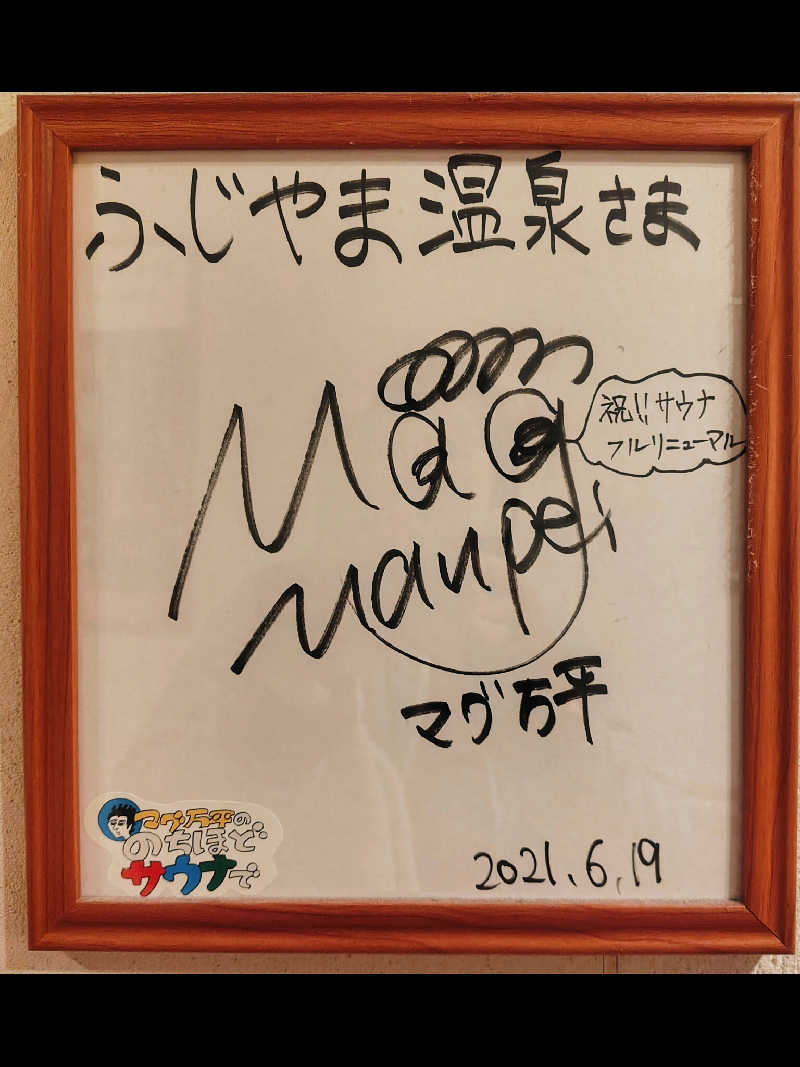 ふじやま温泉さま
祝!!サウナ
フルリニューアル
Mag
Manpei
マグ万平
マグ万平の
のちほど
サウナで
2021.6.19